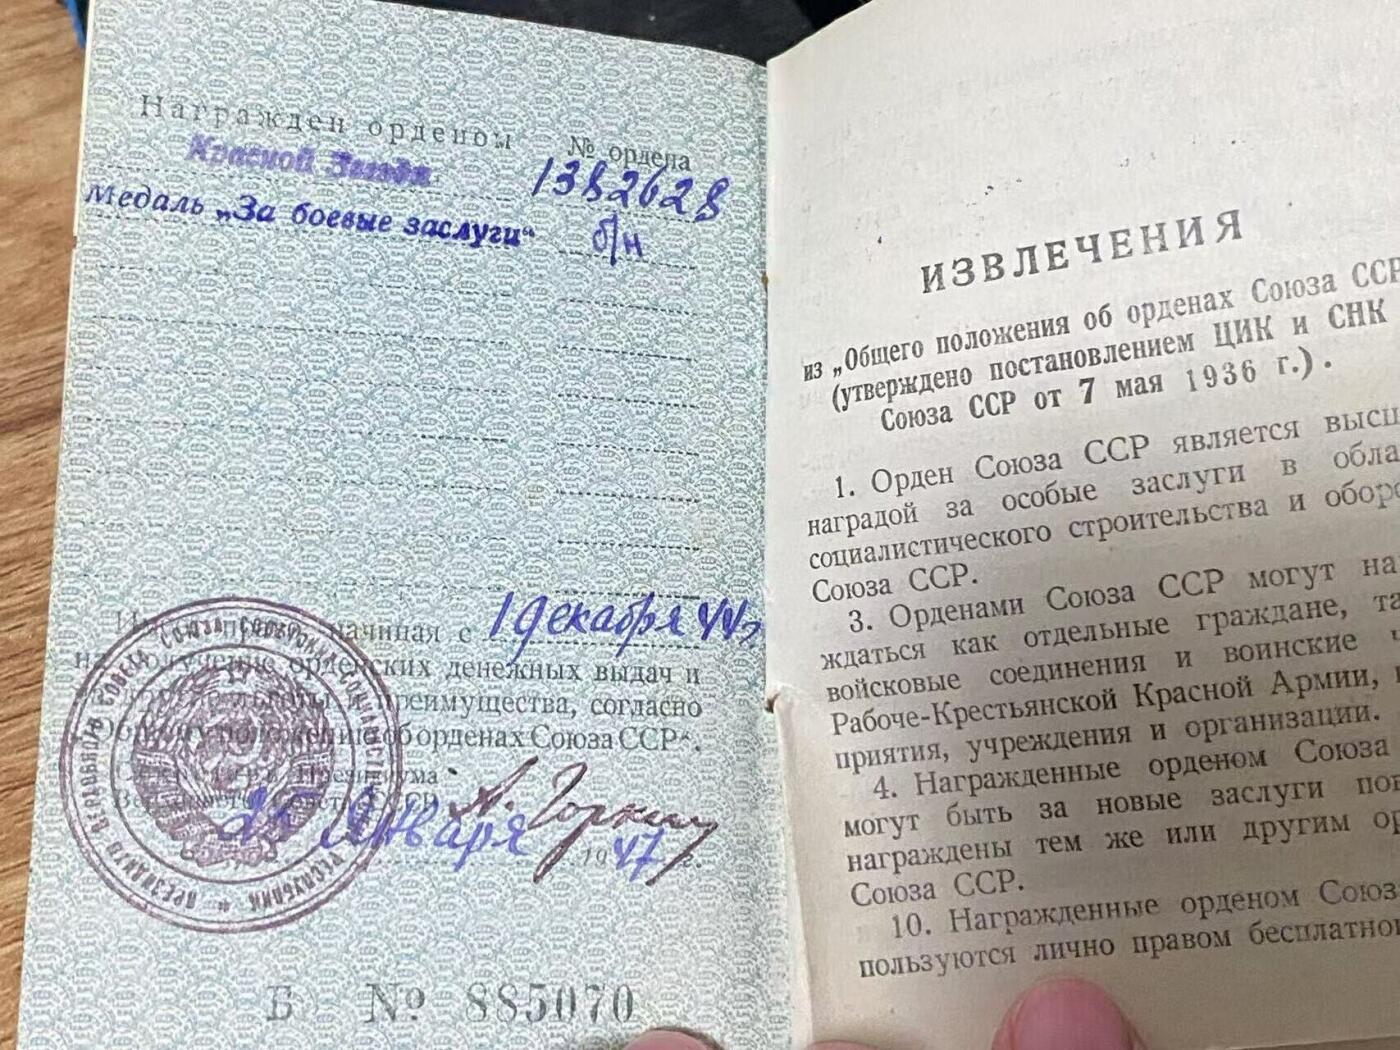 Награжден орденом № ордена
Красной Звезды 1382628
Медаль „За боевые заслуги“ б/н
начиная с 1 декабря 44г
на получение орденских денежных выдач и
преимущества, согласно
положению об орденах Союза ССР“.
Президиума
А. Горкин
25 Января 1947 г.
Б № 885070
ИЗВЛЕЧЕНИЯ
из „Общего положения об орденах Союза ССР
(утверждено постановлением ЦИК и СНК
Союза ССР от 7 мая 1936 г.).
1. Орден Союза ССР является высш
наградой за особые заслуги в обла
социалистического строительства и оборо
Союза ССР.
3. Орденами Союза ССР могут на
ждаться как отдельные граждане, та
войсковые соединения и воинские
Рабоче-Крестьянской Красной Армии,
приятия, учреждения и организации.
4. Награжденные орденом Союза
могут быть за новые заслуги пов
награждены тем же или другим ор
Союза ССР.
10. Награжденные орденом Союз
пользуются лично правом бесплатног